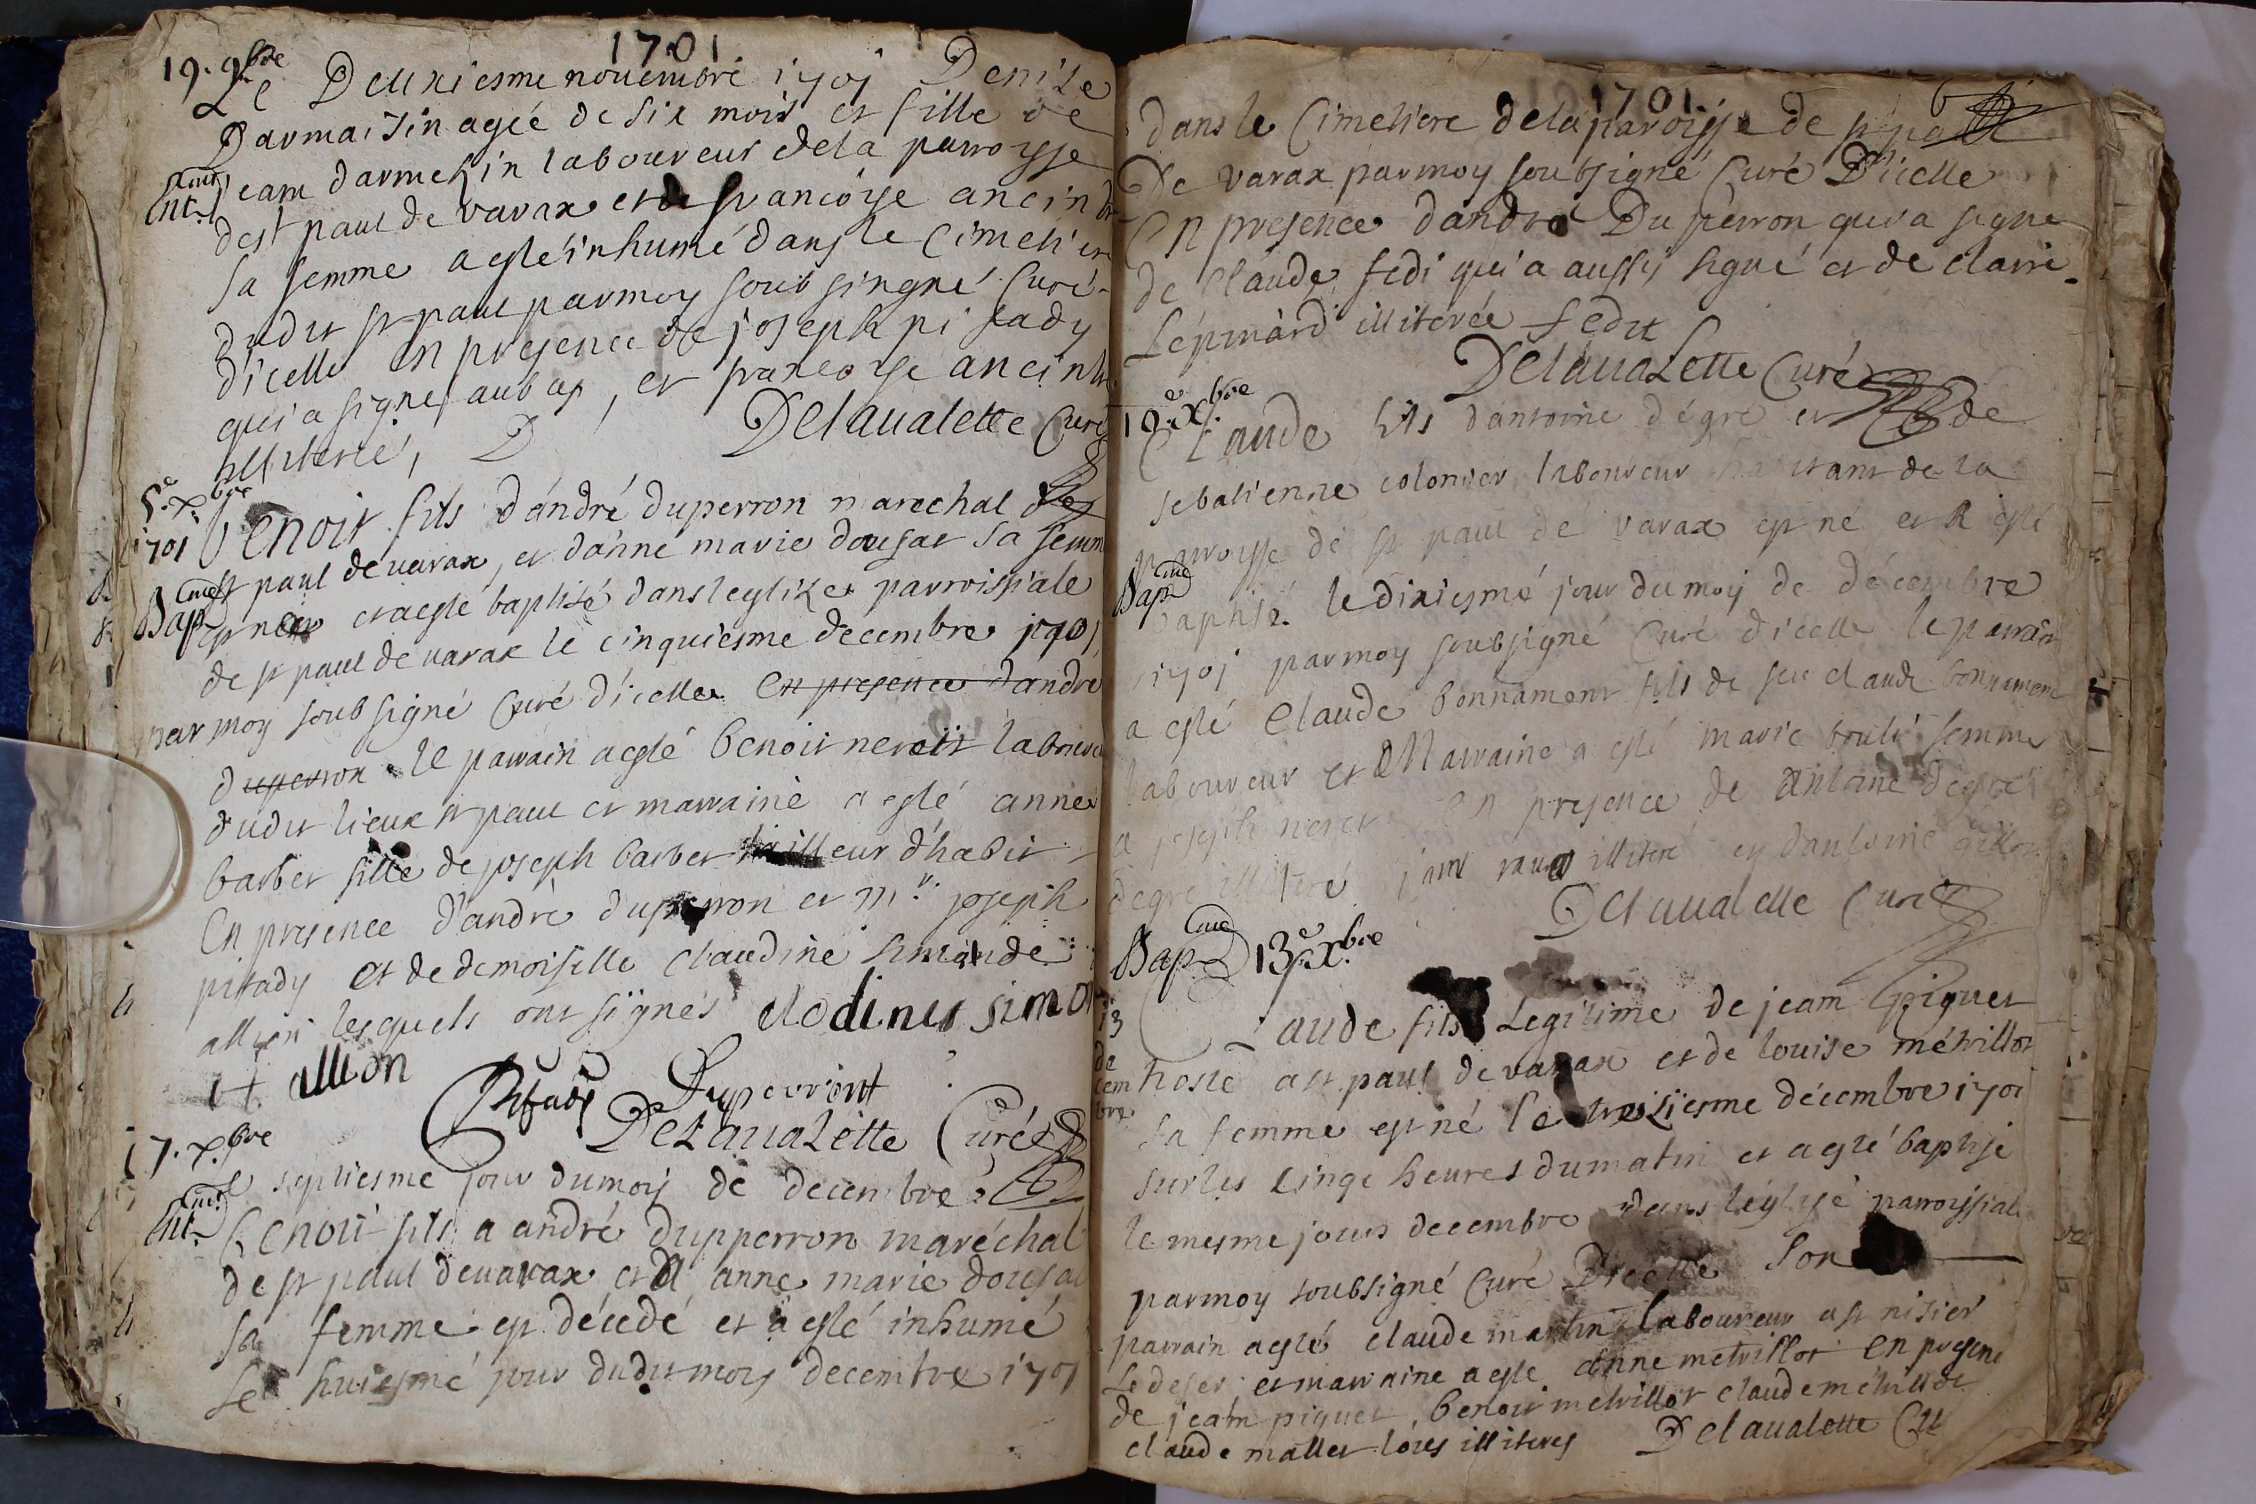 1701
19. 9bre
Le Deuxiesme nouembre 1701 Denise
Darmaisin agée de six mois et fille de
Ent. Cure
jean darmesin laboureur dela parroysse
de st paul de varax et de francoise ancin
sa femme a esté inhumé dans le Cimetiere
dudit st paul parmoy soubsingné Curé
dicelle en presence de joseph pitady
qui a signe, aubas, et francoise ancin
illiteré, Delaualette Curé
5e xbre
1701
Benoit fils d'andré duperron marechal de
Bap. Cure
st paul de uarax, et danne marie dousat sa femme
est né et a esté baptisé dans leglise parroissiale
de st paul de uarax le cinquiesme décembre 1701
par moy soubsigné Curé d'icelle en presence d'andre
duperron le parrain a esté benoit neroit laboureur
dudit lieux st paul et marraine a esté anne
barbet fille de joseph barbet tailleur d'habit
En presence d'andré duperron et mr. joseph
pitady et de demoiselle claudine simonde
allion lesquels ont signés clodines simon
allion
Pitady Duperront
Delaualette Curé
7. xbre
Le septiesme jour dumoy de decembre
Ent. Cure
Benoit fils a andré dupperron maréchal
de st paul deuarax et d anne marie dousat
sa femme est décédé et a esté inhumé
le huiesmé jour dudit moy decembre 1701
1701
dans le Cimetiere dela paroisse de st paul
De varax parmoy soubsigné Curé D'icelle
En presence dandré Duperron qui a signe
de Claude fedi qui a aussy signé et de clarie
Lépinard illiterée fedit
Delaualette Curé
10.e xbre
Claude fils dantoine dégre et de
sebatienne colonier laboureur habitant de la
parroysse de st paul de varax est né et a esté
Bap. Cure
baptisé le dixiesmé jour du moy de décembre
1701 parmoy soubsigné Curé dicelle le parrain
a esté Claude bonnament fils de feu claude bonnament
laboureur et Marraine a esté marie femme
a joseph neret en presence de antoine degre
degre illiteré illiteré et dantoine
Delaualette Curé
Bap. Cure 13e xbre
13
de
cem
bre
Claude fils Legitime de jeam piquet
hoste a st paul de varax et de louise métrillot
sa femme est né le treisiesme décembre 1701
sur les cinqe heures dumatin et a esté baptisé
le mesme jours decembre dans léglyse parroyssial
parmoy soubsigné Curé Dicelle Son
parrain a esté claude martin laboureur a st nisier
Le deser, et marraine a esté anne metrillot En presence
de jeam piquet, benoit metrillot claude metrillot
claude mallet tous illiteres Delaualette Curé